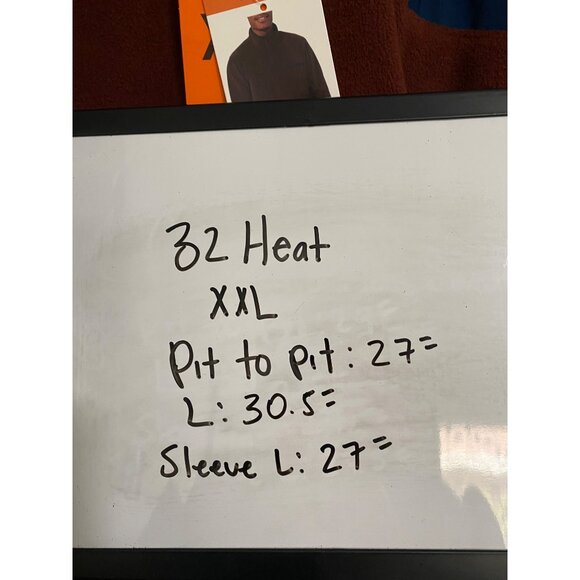 32 Heat
XXL
Pit to pit: 27=
L: 30.5=
Sleeve L: 27=